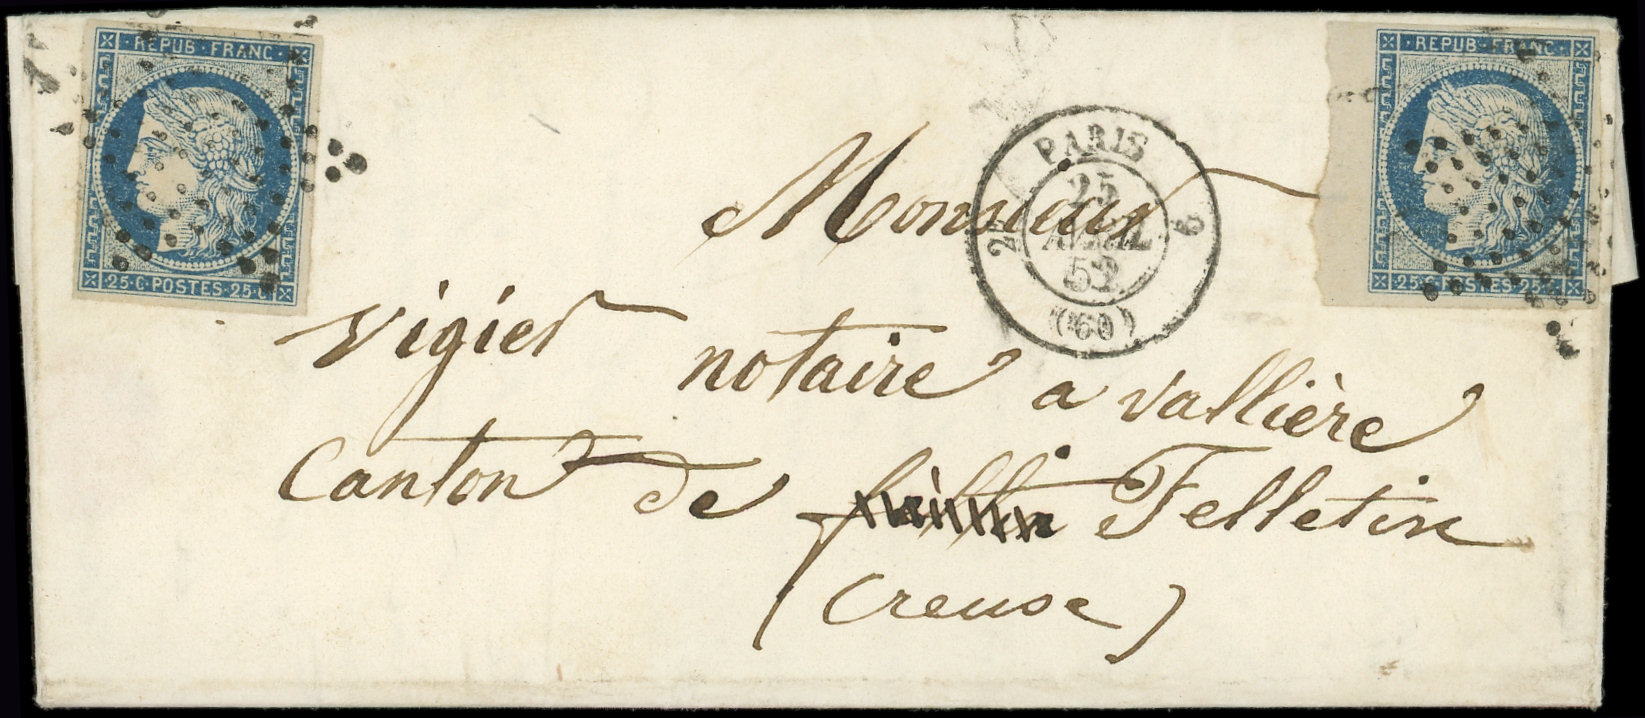 REPUB·FRANC·
25·C POSTES·25·C
REPUB·FRANC·
25·C POSTES·25·C
PARIS
25
AVRIL
52
(60)
Monsieur
Vigier notaire a vallière
Canton de Felletin
(Creuse)